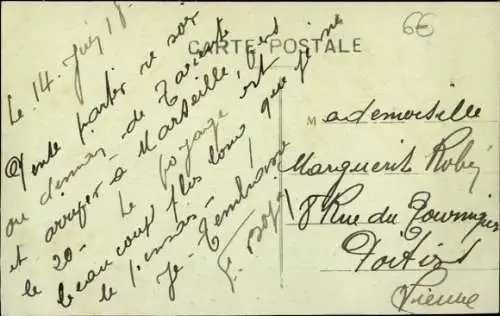 6E
CARTE POSTALE
Le 14. Juin 18
partir ce soir
ou demain de Tarente
et arriver à Marseille vers
le 20 - Le voyage est
beaucoup plus long que je ne
le pensais -
Je t'embrasse
Mademoiselle
Marguerite Robin
8 Rue du
Poitiers
Vienne